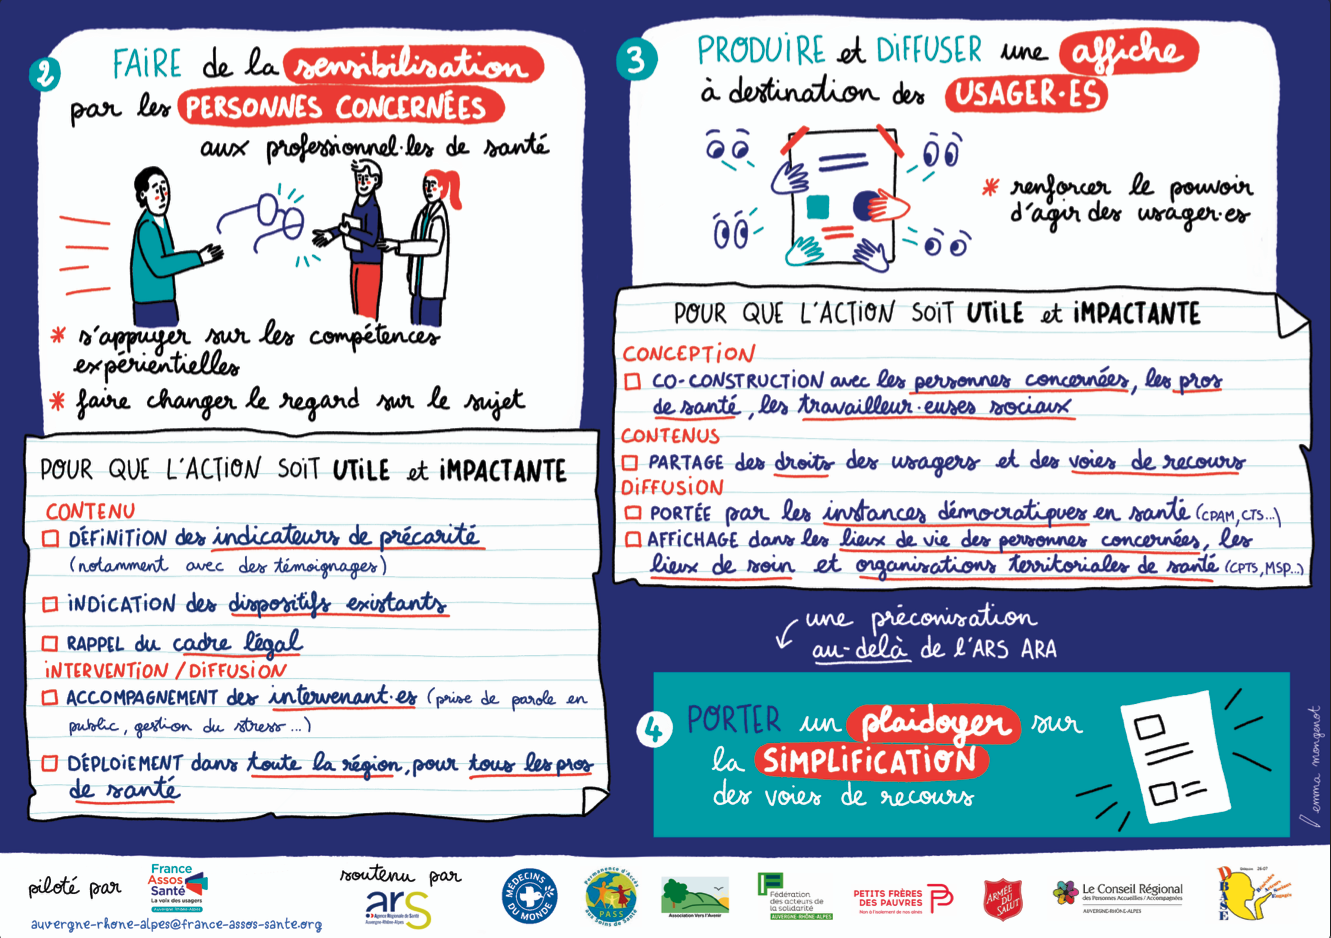 2 FAIRE de la sensibilisation
par les PERSONNES CONCERNÉES
aux professionnel·les de santé
* s'appuyer sur les compétences
expérientielles
* faire changer le regard sur le sujet
POUR QUE L'ACTION SOIT UTILE et IMPACTANTE
CONTENU
DÉFINITION des indicateurs de précarité
(notamment avec des témoignages)
INDICATION des dispositifs existants
RAPPEL du cadre légal
INTERVENTION / DIFFUSION
ACCOMPAGNEMENT des intervenant·es (prise de parole en
public, gestion du stress ...)
DÉPLOIEMENT dans toute la région, pour tous les pros
de santé
3 PRODUIRE et DIFFUSER une affiche
à destination des USAGER·ES
* renforcer le pouvoir
d'agir des usager·es
POUR QUE L'ACTION SOIT UTILE et IMPACTANTE
CONCEPTION
CO-CONSTRUCTION avec les personnes concernées, les pros
de santé, les travailleur·euses sociaux
CONTENUS
PARTAGE des droits des usagers et des voies de recours
DIFFUSION
PORTÉE par les instances démocratiques en santé (CPAM, CTS...)
AFFICHAGE dans les lieux de vie des personnes concernées, les
lieux de soin et organisations territoriales de santé (CPTS, MSP...)
une préconisation
au-delà de l'ARS ARA
4 PORTER un plaidoyer sur
la SIMPLIFICATION
des voies de recours
emma mongenot
piloté par
France
Assos
Santé
La voix des usagers
Auvergne-Rhône-Alpes
auvergne-rhone-alpes@france-assos-sante.org
soutenu par
ars
Agence Régionale de Santé
Auvergne-Rhône-Alpes
MÉDECINS DU MONDE
Permanence d'Accès
PASS
aux Soins de Santé
Association Vers l'Avenir
Fédération
des acteurs de
la solidarité
AUVERGNE-RHÔNE-ALPES
PETITS FRÈRES
DES PAUVRES
Non à l'isolement de nos aînés
ARMÉE DU SALUT
Le Conseil Régional
des Personnes Accueillies / Accompagnées
AUVERGNE-RHÔNE-ALPES
DBASE
26-07